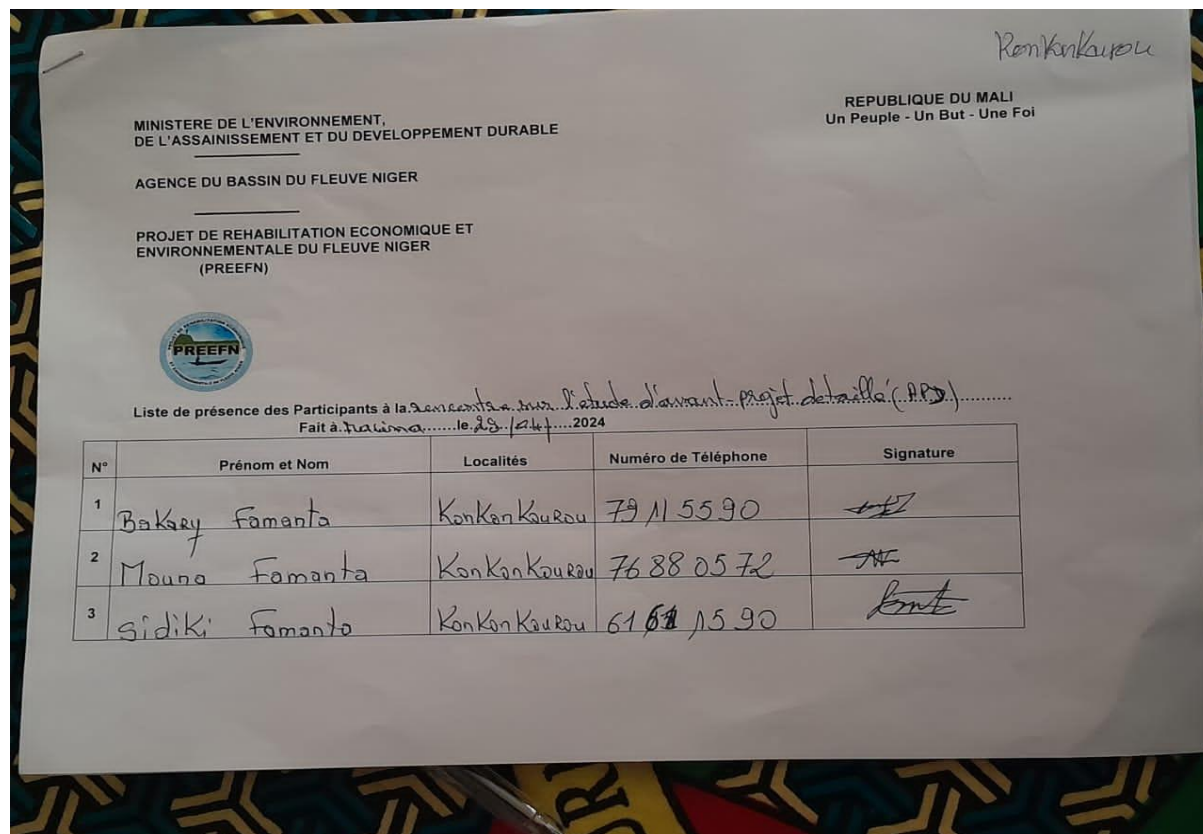 KonKonKourou
MINISTERE DE L'ENVIRONNEMENT,
DE L'ASSAINISSEMENT ET DU DEVELOPPEMENT DURABLE
REPUBLIQUE DU MALI
Un Peuple - Un But - Une Foi
AGENCE DU BASSIN DU FLEUVE NIGER
PROJET DE REHABILITATION ECONOMIQUE ET
ENVIRONNEMENTALE DU FLEUVE NIGER
(PREEFN)
PREEFN
Liste de présence des Participants à la rencontre sur l'étude d'avant-projet detaillé (APD)
Fait à le 2024
N° Prénom et Nom Localités Numéro de Téléphone Signature
1 Bakary Famanta KonKonKouRou 79 11 55 90
2 Mouna Famanta KonKonKouRou 76 88 05 72
3 Sidiki Famanta KonKonKouRou 61 15 90